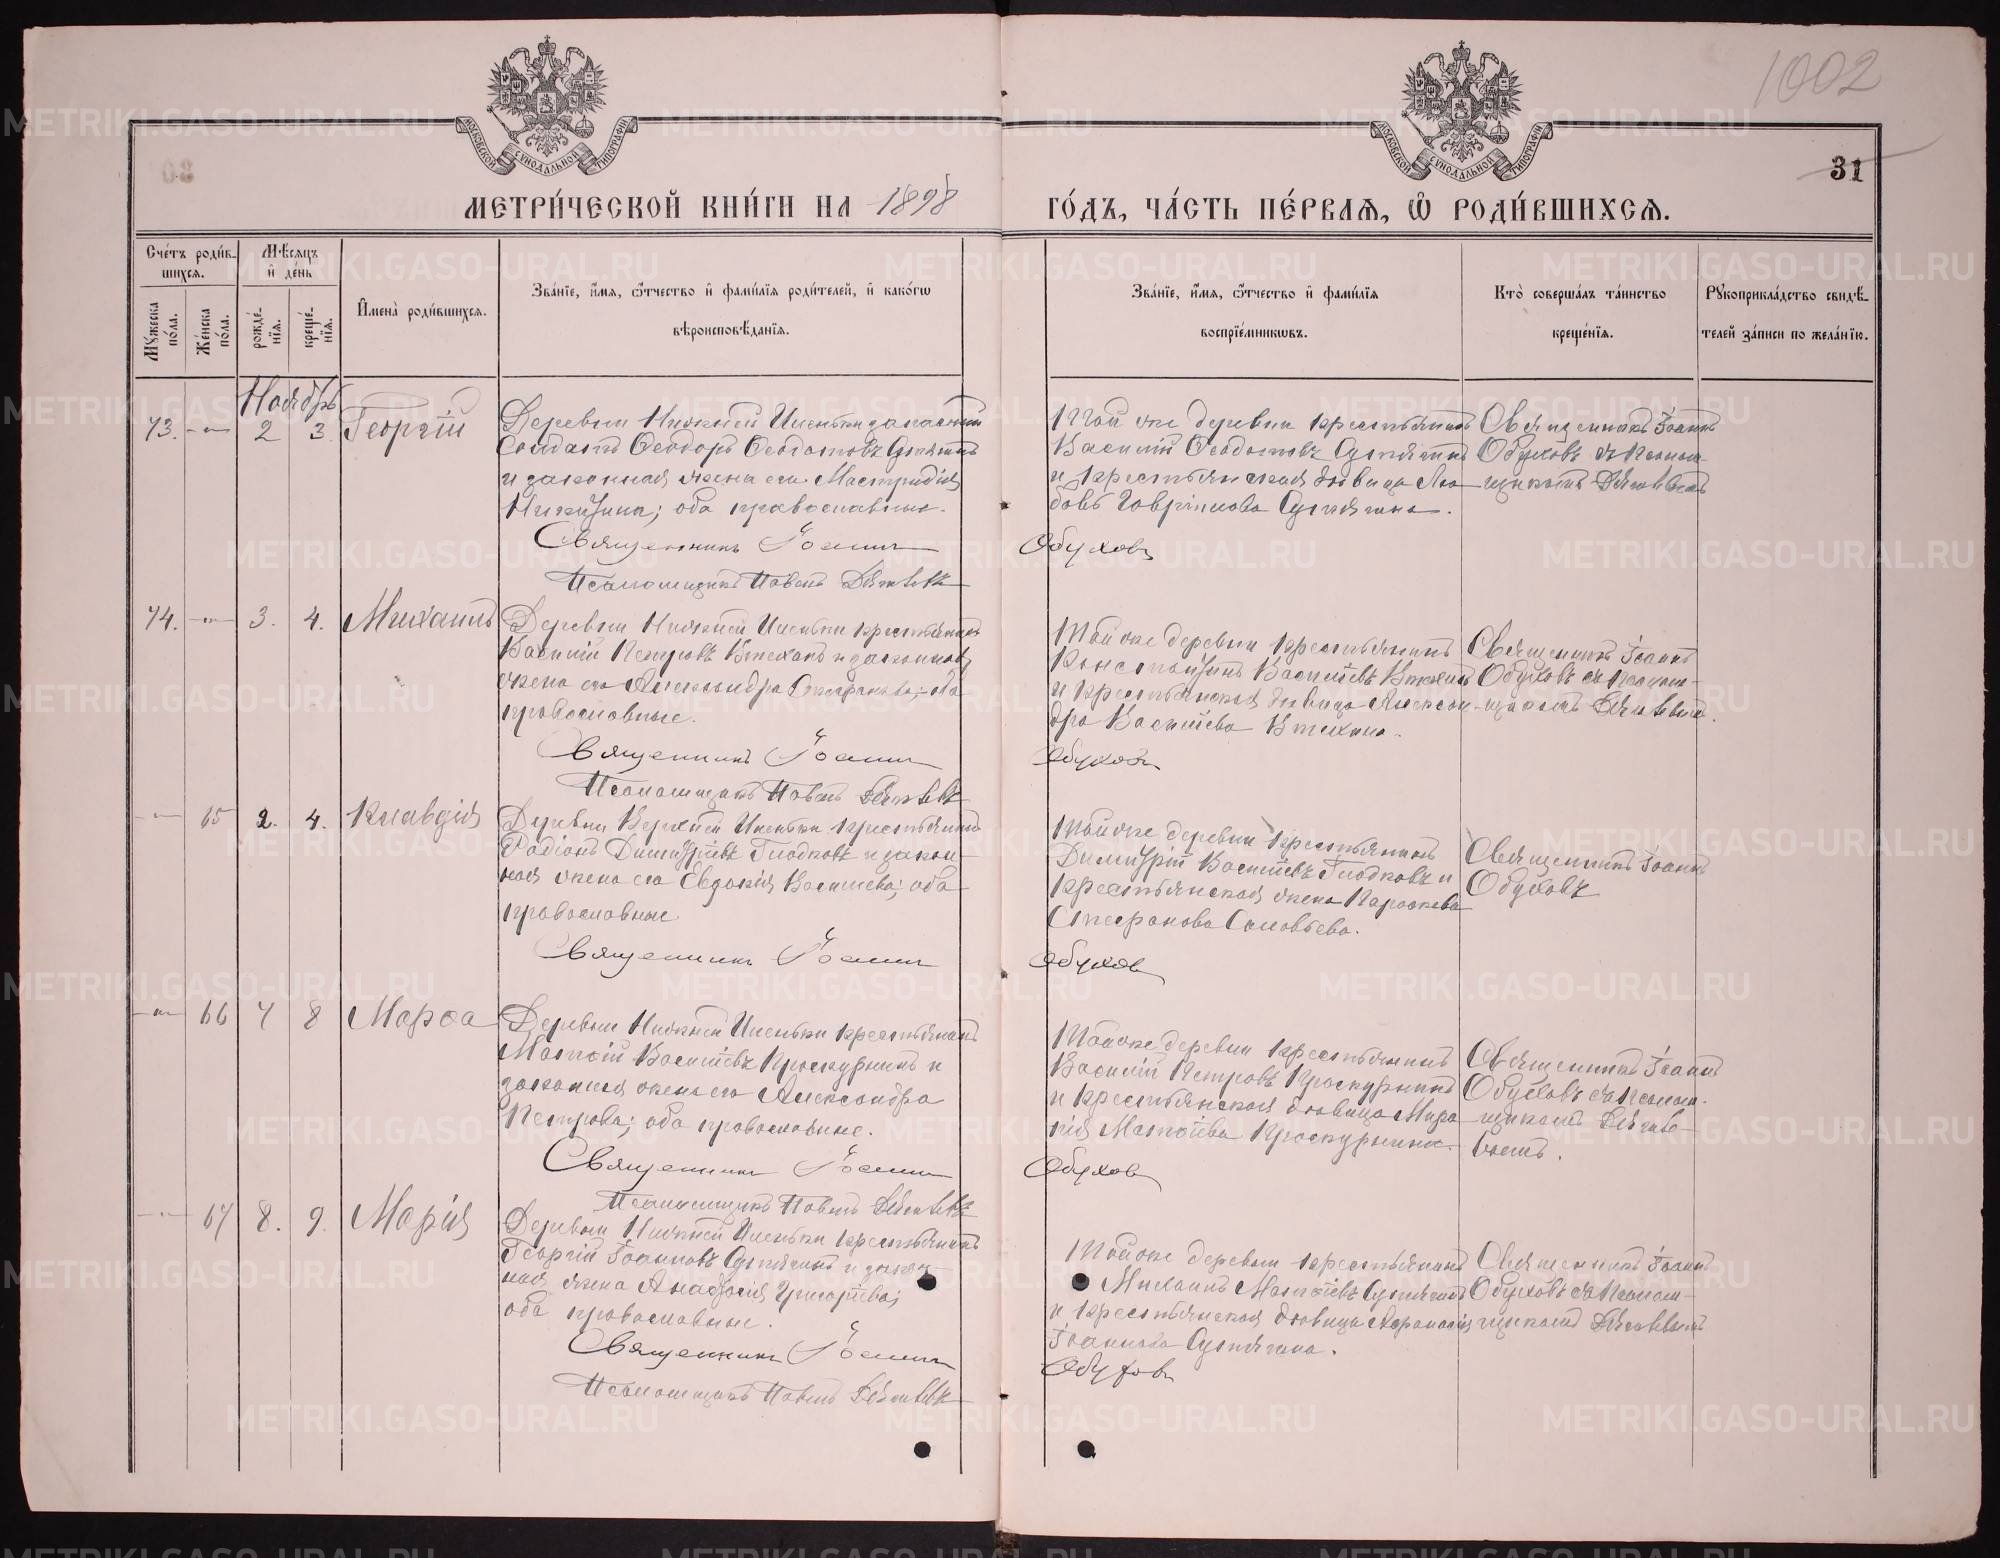 1002
31
МОСКОВСКОЙ СѴНОДАЛЬНОЙ ТИПОГРАФІИ
МОСКОВСКОЙ СѴНОДАЛЬНОЙ ТИПОГРАФІИ
МЕТРИ́ЧЕСКОЙ КНИ́ГИ НА 1898
ГО́ДЪ, ЧА́СТЬ ПЕ́РВАѦ, Ѡ҆ РОДИ́ВШИХСѦ.
Сче́тъ роди́в-
шихсѧ.
Мꙋ́жеска по́ла.
Же́нска по́ла.
Мѣ́сѧцъ
и҆ де́нь
рожде́-
нїѧ.
креще́-
нїѧ.
И҆мена̀ роди́вшихсѧ.
Зва́нїе, и҆́мѧ, ѻ҆́тчество и҆ фами́лїѧ роди́телей, и҆ како́гѡ
вѣроисповѣ́данїѧ.
Зва́нїе, и҆́мѧ, ѻ҆́тчество и҆ фами́лїѧ
воспрїе́мникѡвъ.
Кто̀ соверша́лъ та́инство
креще́нїѧ.
Рꙋкоприкла́дство свидѣ́-
телей за́писи по жела́нїю.
Ноябрь
73. 2 3. Георгій
Деревни Нижней Иленьки запасный
Солдатъ Ѳеодоръ Ѳеодотовъ
и законная жена его
оба православные.
Священникъ Іоаннъ
Псаломщикъ Павелъ
Той же деревни крестьянинъ
Василій Ѳеодотовъ
и крестьянская дѣвица Лю-
бовь Гавріилова
Обуховъ
Священникъ Іоаннъ
Обуховъ съ Псалом-
щикомъ
74. 3. 4. Михаилъ
Деревни Нижней Иленьки крестьянинъ
Василій Петровъ и законная
жена его Александра Стефанова; оба
православные.
Священникъ Іоаннъ
Псаломщикъ Павелъ
Той же деревни крестьянинъ
Константинъ Васильевъ
и крестьянская дѣвица Алексан-
дра Васильева
Обуховъ
Священникъ Іоаннъ
Обуховъ съ Псалом-
щикомъ
65 2. 4. Клавдія
Деревни Верхней Иленьки крестьянинъ
Родіонъ Димитріевъ Гладковъ и закон-
ная жена его Евдокія Васильева; оба
православные
Священникъ Іоаннъ
Той же деревни крестьянинъ
Димитрій Васильевъ Гладковъ и
крестьянская жена Параскева
Стефанова Соловьева.
Обуховъ
Священникъ Іоаннъ
Обуховъ
66 7 8 Марѳа
Деревни Нижней Иленьки крестьянинъ
Матѳій Васильевъ Проскурнинъ и
законная жена его Александра
Петрова; оба православные.
Священникъ Іоаннъ
Псаломщикъ Павелъ
Той же деревни крестьянинъ
Василій Петровъ Проскурнинъ
и крестьянская дѣвица
Матѳіева Проскурнина.
Обуховъ
Священникъ Іоаннъ
Обуховъ съ Псалом-
щикомъ
67 8. 9. Марія
Деревни Нижней Иленьки крестьянинъ
Георгій Іоанновъ и закон-
ная жена Григорьева;
оба православные.
Священникъ Іоаннъ
Псаломщикъ Павелъ
Той же деревни крестьянинъ
Михаилъ Матѳіевъ
и крестьянская дѣвица
Іоаннова
Обуховъ
Священникъ Іоаннъ
Обуховъ съ Псалом-
щикомъ
METRIKI.GASO-URAL.RU